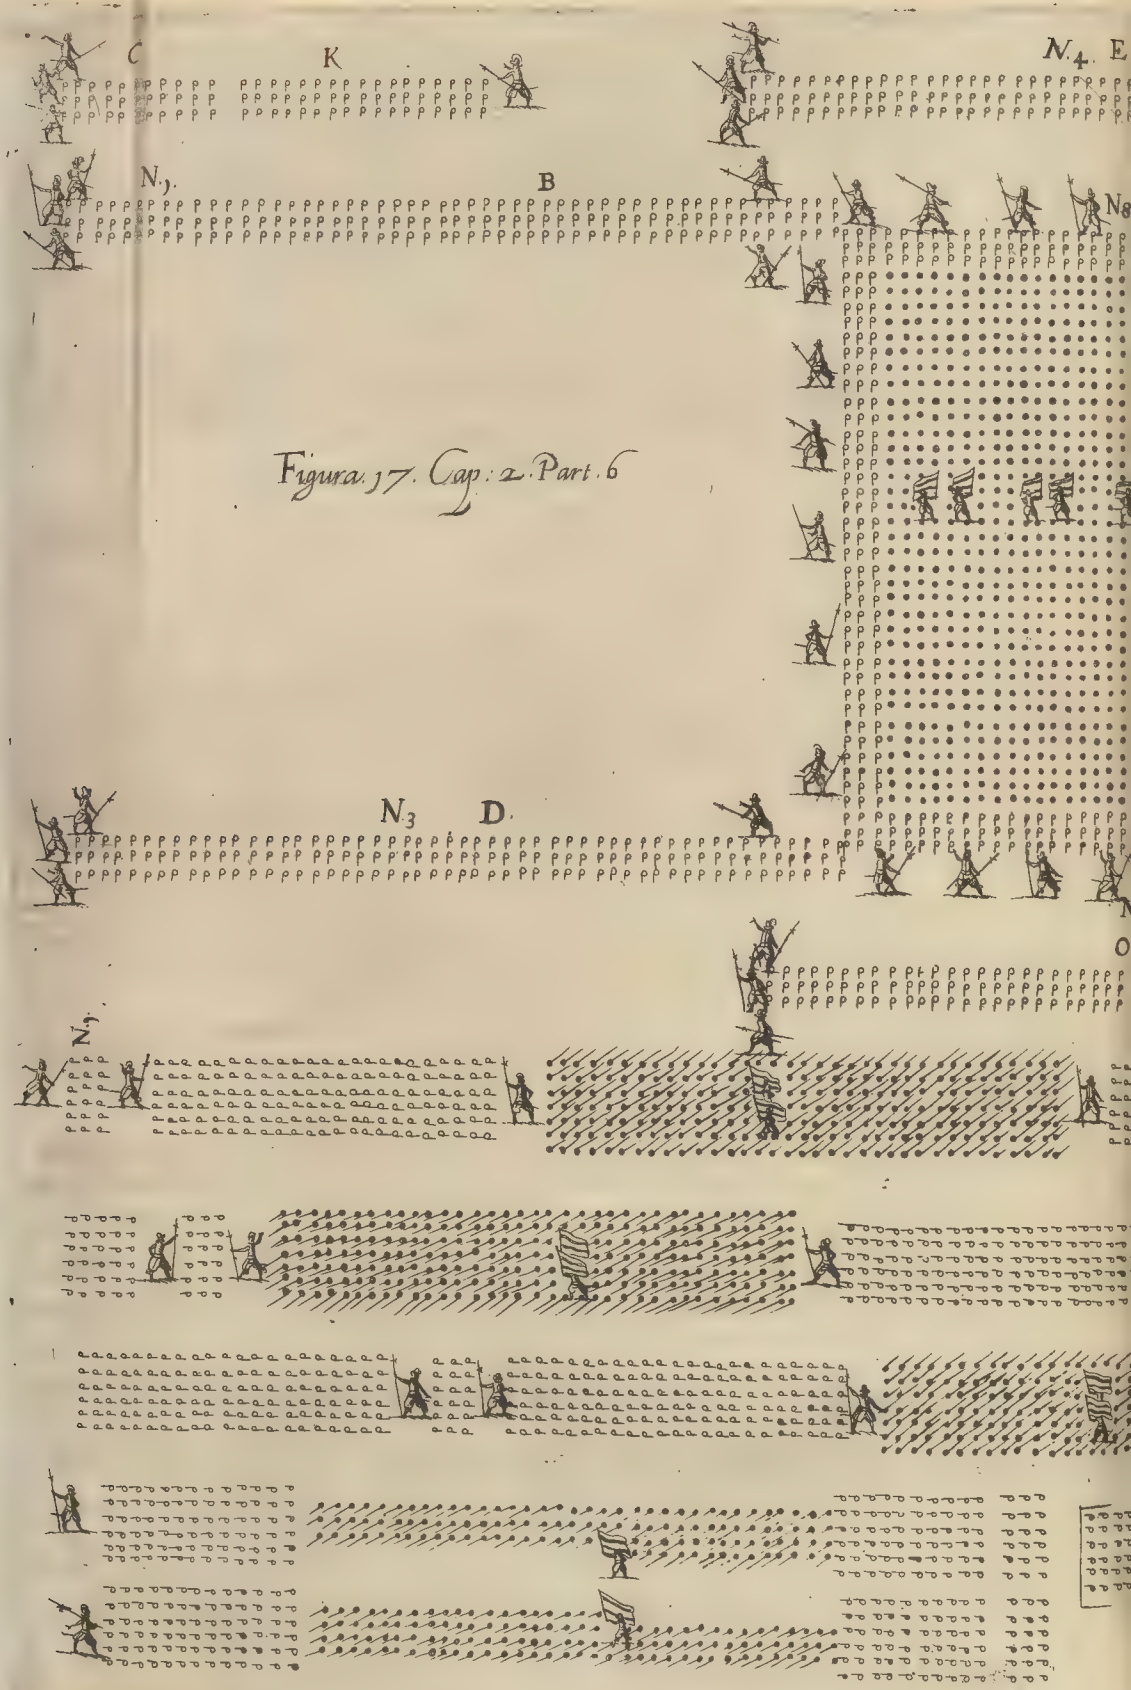 C K N.4. E
N.1. B N8
Figura. 17. Cap: 2. Part. 6
N.3 D.
N
O
N.1.